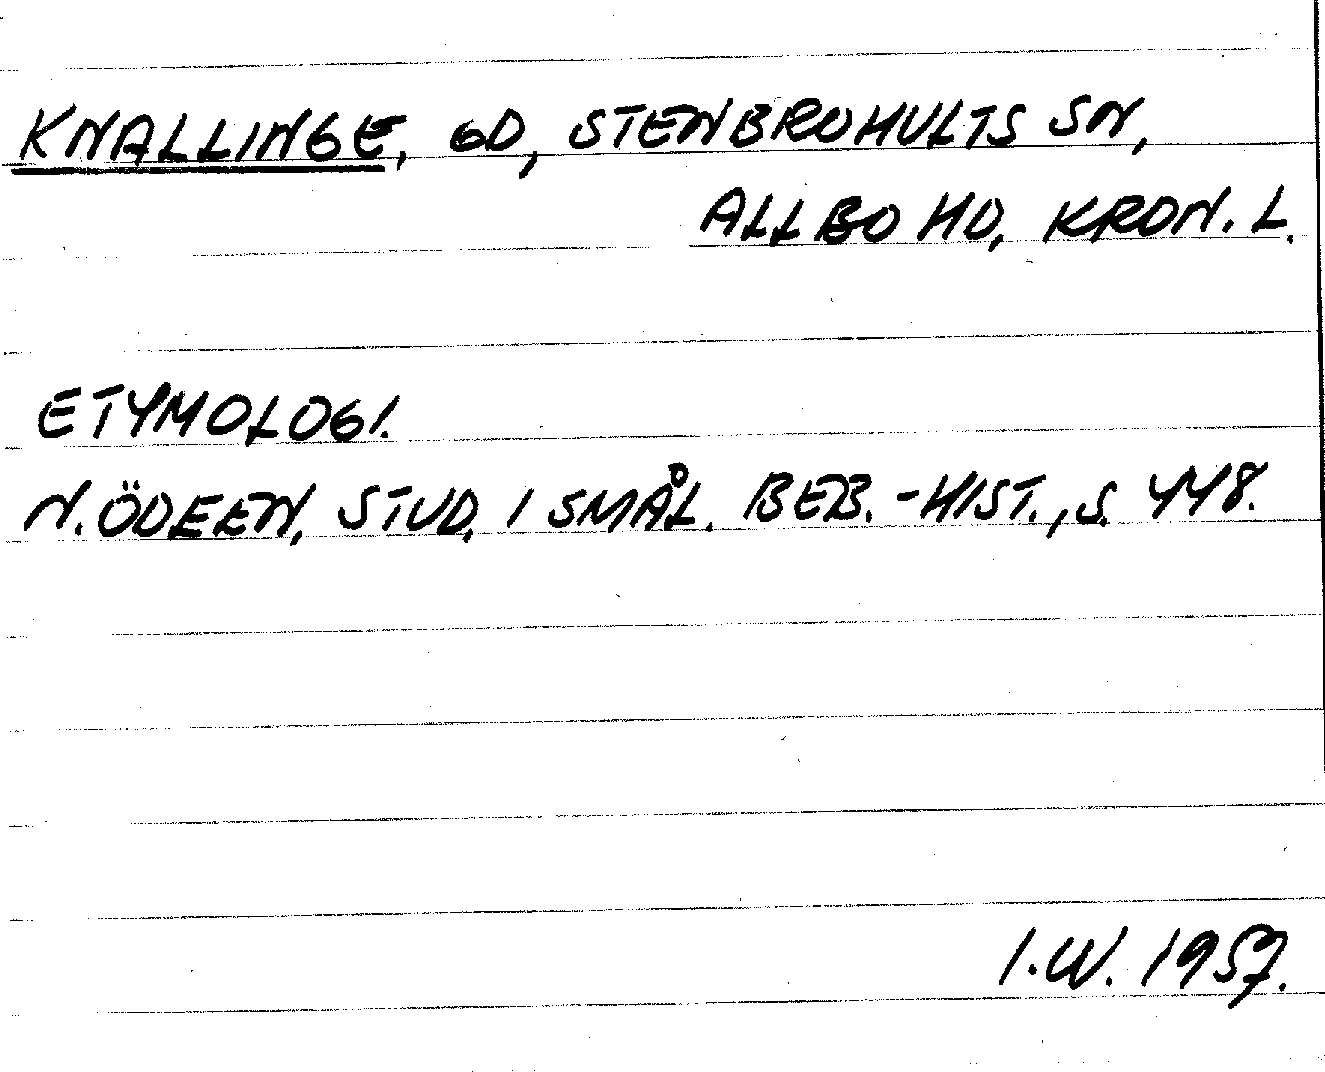 KNALLINGE, GD, STENBROHULTS SN,
ALLBO HD, KRON. L.
ETYMOLOGI.
N. ÖDEEN, STUD. I SMÅL. BEB.-HIST., S. 448.
I.W. 1957.